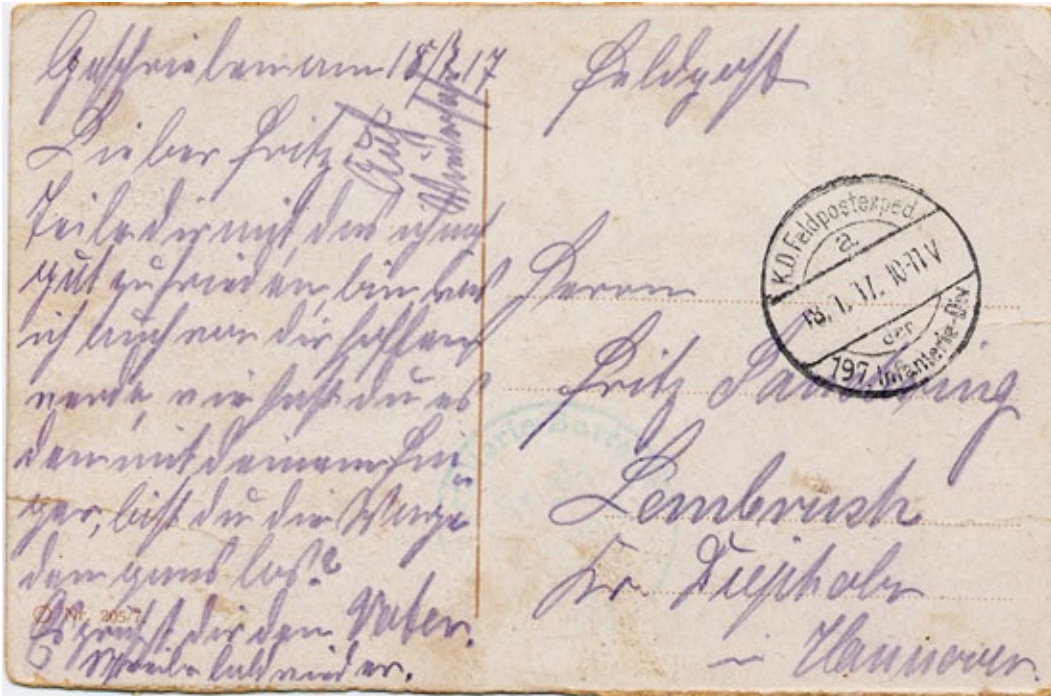 Geschrieben am 18/1. 17
Lieber Fritz
Auf
Wiedersehn
Teile dir mit, das ich noch
gut zufrieden bin, was
ich auch von dir hoffen
werde, wie hast du es
den mit deinem Fin
ger, bist du die Warze
den gans los?
Es grüßt dir den Vater.
Schreibe bald wieder.
Nr. 205/7.
Feldpost
K.D. Feldpostexped.
a.
18. 1. 17. 10-11 V
der
197. Infanterie-Div
Herrn
Fritz
Lembruch
Kr. Diepholz
Hannover.